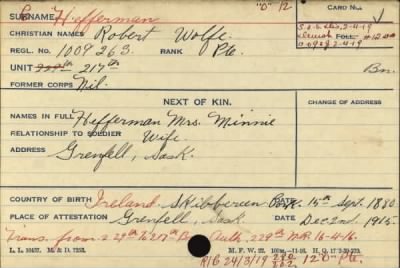 "D" 12 CARD No.
SURNAME Hefferman
CHRISTIAN NAMES Robert Wolfe
REGL. No. 1009263 RANK Pte. FOLL.
UNIT 229th 217th Bn.
FORMER CORPS Nil.
NEXT OF KIN.
CHANGE OF ADDRESS
NAMES IN FULL Hefferman Mrs. Minnie
RELATIONSHIP TO SOLDIER Wife
ADDRESS Grenfell, Sask.
COUNTRY OF BIRTH Ireland Skibbereen Cork. 15th Sept. 1880
PLACE OF ATTESTATION Grenfell, Sask DATE Dec 2nd 1915.
Trans. from 229th to 217th Bn Auth. 229th 16-4-16.
L. L. M. & D. M. F. W. 22.
R16 24/3/19 Pte.